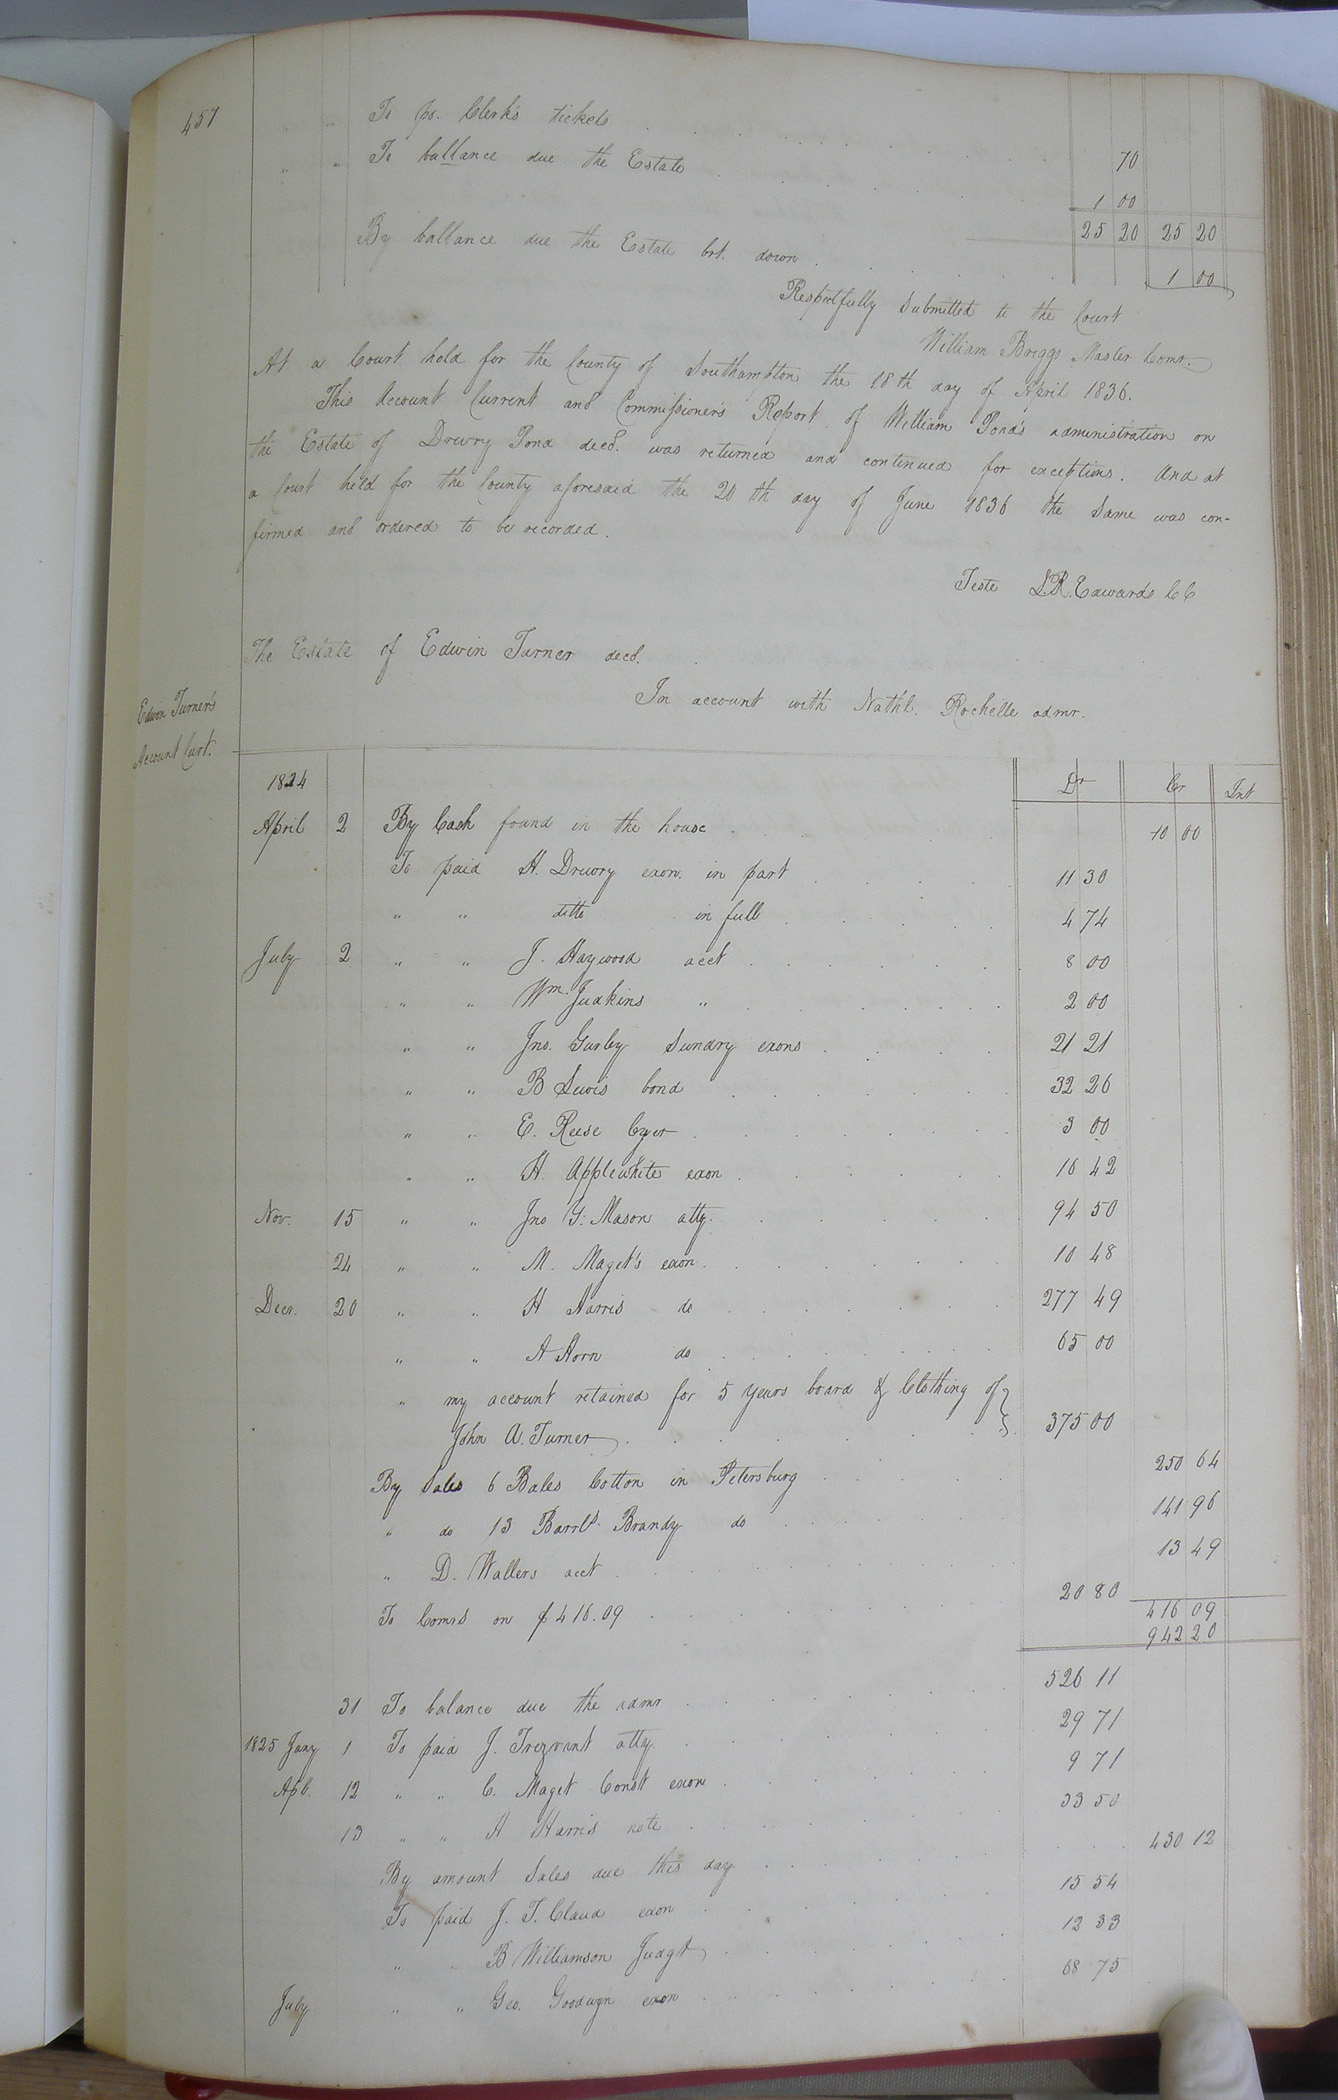 457
To pr. Clerk's tickets 70
" " To ballance due the Estate 1 00
25 20 25 20
By ballance due the Estate brt. down 1 00
Respectfully submitted to the Court
William Briggs Master Comr.
At a Court held for the County of Southampton the 18th day of April 1836.
This Account Current and Commissioner's Report of William Pond's administration on
the Estate of Drewry Pond decd. was returned and continued for exceptions. And at
a Court held for the County aforesaid the 20th day of June 1836 the same was con-
firmed and ordered to be recorded.
Teste L.R. Edwards CC
The Estate of Edwin Turner decd.
In account with Nathl. Rochelle admr.
Edwin Turner's
Account Curt.
1824 Dr Cr Int
April 2 By Cash found in the house 10 00
To paid H. Drewry exon. in part 11 30
" " ditto in full 4 74
July 2 " " J. Haywood acct 8 00
" " Wm. Judkins " 2 00
" " Jno. Gurley Sundry exons 21 21
" " B Lewis bond 32 26
" " E. Reese Cryer 3 00
" " H. Applewhite exon 10 42
Nov. 15 " " Jno G. Mason atty. 94 50
24 " " M. Maget's exon 10 48
Decr. 20 " " H Harris do 277 49
" " A Horn do 65 00
" my account retained for 5 years board & Clothing of }
John A. Turner 375 00
By Sales 6 Bales Cotton in Petersburg 250 64
" do 13 Barrls. Brandy do 141 96
" D. Wallers acct 13 49
To Comrs on $416.09 20 80
416 09
942 20
31 To balance due the admr 526 11
1825 Jany 1 To paid J. Trezvant atty 29 71
Apl. 12 " " C. Maget Const exon 9 71
13 " " A Harris note 33 50
By amount Sales due this day 430 12
To paid J. T. Claud exon 15 54
" " B Williamson Judgt 12 33
July " " Geo. Goodwyn exon 68 75